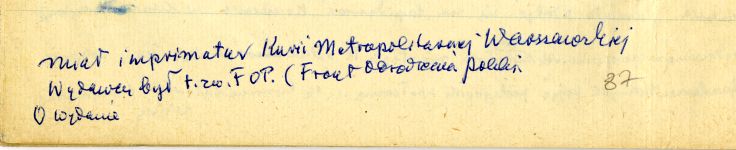 miał imprimatur Kurii Metropolitarnej Warszawskiej
Wydawcą był t.zw. FOP. (Front Odrodzenia Polski
O wydanie
87